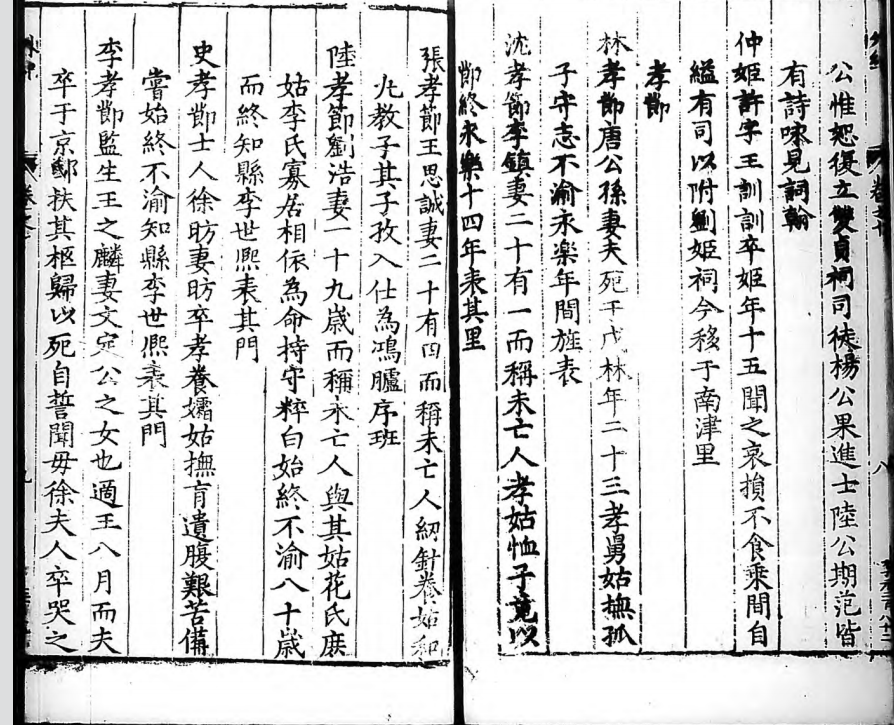 公惟恕復立雙貞祠司徒楊公果進士陸公期范皆
有詩咏見詞翰
仲姬許字王訓訓卒姬年十五聞之哀損不食乘間自
縊有司以附劉姬祠今移于南津里
孝節
林孝節唐公孫妻夫死于戍林年二十三孝舅姑撫孤
子守志不渝永楽年間旌表
沈孝節李鎮妻二十有一而稱未亡人孝姑恤子竟以
節終永樂十四年表其里
張孝節王思誠妻二十有四而稱未亡人紉針養姑和
九教子其子孜入仕為鴻臚序班
陸孝節劉浩妻一十九歲而稱未亡人與其姑花氏庶
姑李氏寡居相依為命持守粹白始終不渝八十歲
而終知縣李世熙表其門
史孝節士人徐昉妻昉卒孝養孀姑撫育遺腹艱苦備
嘗始終不渝知縣李世熙表其門
李孝節監生王之麟妻文定公之女也適王八月而夫
卒于京邸扶其柩歸以死自誓聞母徐夫人卒哭之